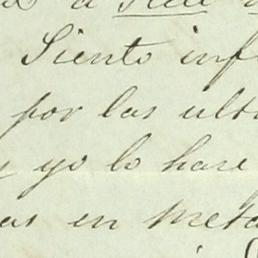 a
Siento inf
por las ult
y yo lo hare
as en meta